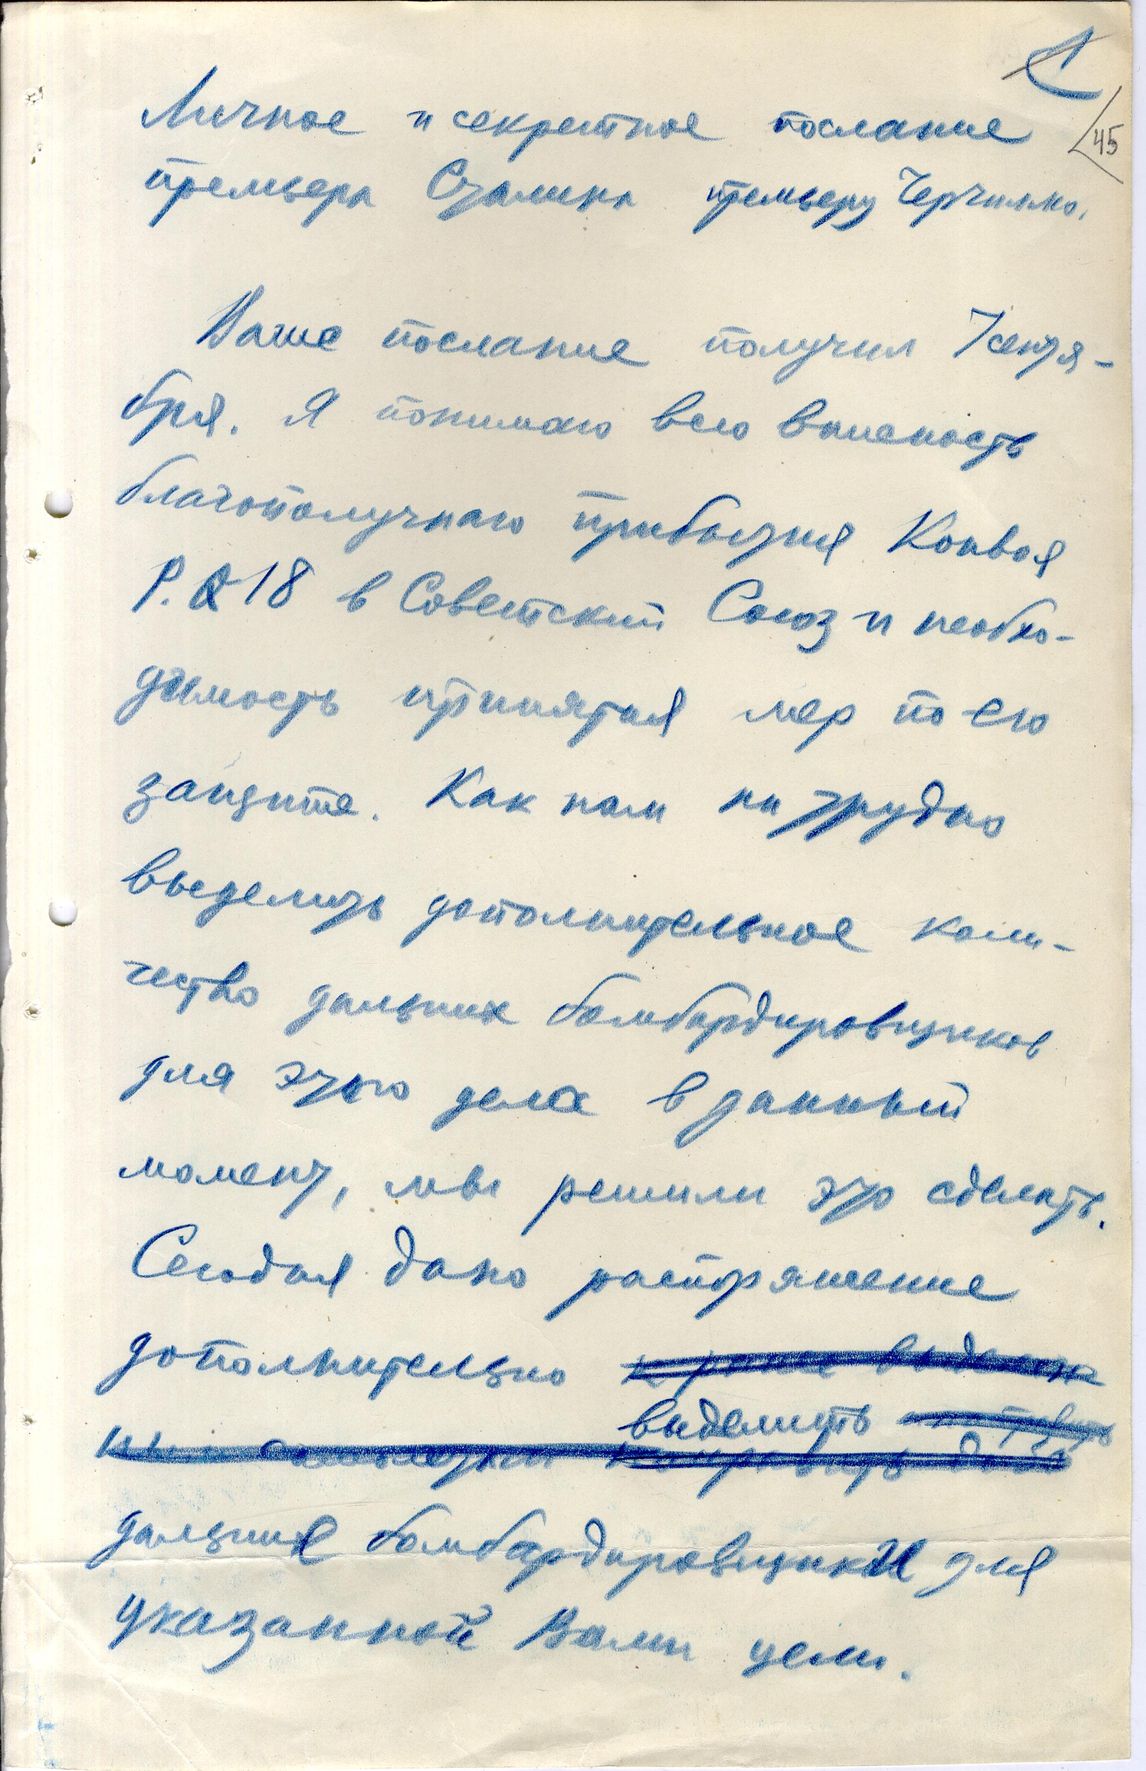 1
45
Личное и секретное послание
премьера Сталина премьеру Черчиллю.
Ваше послание получил 7 сентя-
бря. Я понимаю всю важность
благополучного прибытия Конвоя
P.Q 18 в Советский Союз и необхо-
димость принятия мер по его
защите. Как нам ни трудно
выделить дополнительное коли-
чество дальних бомбардировщиков
для этого дела в данный
момент, мы решили это сделать.
Сегодня дано распоряжение
дополнительно
выделить
дальние бомбардировщики для
указанной Вами цели.